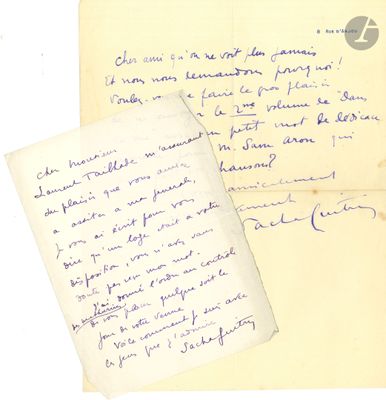 8 RUE D'ANJOU
Cher ami qu'on ne voit plus jamais
Et nous nous demandons pourquoi !
Voulez-vous me faire le gros plaisir
le 2me volume de dans
petit mot de dédicace
M. Sam Aron qui
chanson ?
amicalement
Sacha Guitry
Cher Monsieur
Laurent Tailhade m'assurant
du plaisir que vous auriez
a assister a ma générale,
Je vous ai écrit pour vous
dire qu'une loge était a votre
disposition, vous n'avez sans
doute pas eu mon mot.
J'ai donné l'ordre au contrôle
de vous placer quelque soit le
jour de votre venue
Voici comment je suis avec
les gens que j'admire
Sacha Guitry